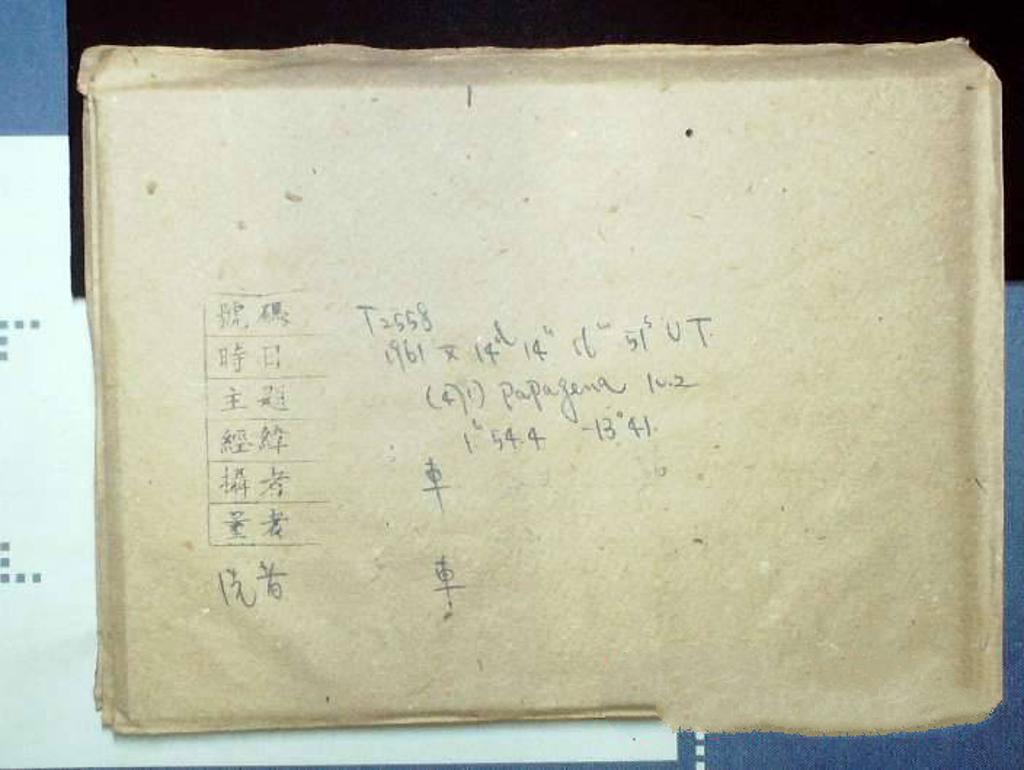 號碼 T2558
時日 1961 X 14d 14h 16m 51s UT.
主題 (471) papagena 10.2
經緯 1h 54.4 -13°41.
攝者 車
量者
洗者 車